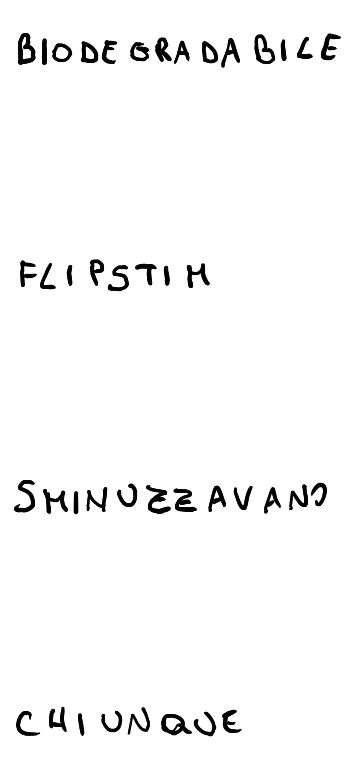 BIODEGRADABILE
FLIPSTIM
SMINUZZAVANO
CHIUNQUE